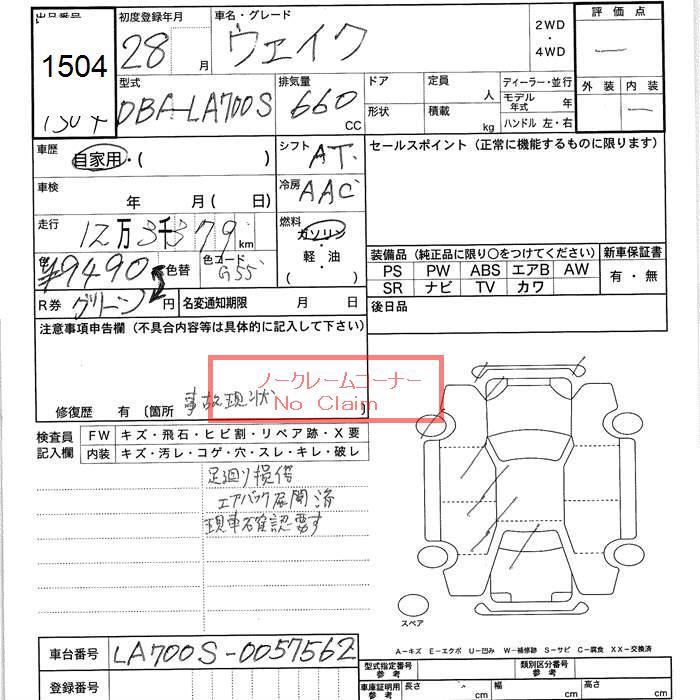 出品番号 初度登録年月 車名・グレード 2WD ・ 4WD 評価点
1504 28 月 ウェイク —
型式 排気量 ドア 定員 ディーラー・並行 外装 内装
DBA-LA700S 660 CC 形状 積載 人 kg モデル年式 年 ハンドル 左・右 —
車歴 自家用・( ) シフト AT セールスポイント（正常に機能するものに限ります）
車検 年 月 ( 日) 冷房 AAC
走行 12万3千379 km 燃料 ガソリン ・ 軽・油 ( )
装備品（純正品に限り○をつけてください） 新車保証書
色替 色コード G55 PS PW ABS エアB AW 有・無
¥9490 SR ナビ TV カワ
R券 グリーン 円 名変通知期限 月 日 後日品
注意事項申告欄（不具合内容等は具体的に記入して下さい）
ノークレームコーナー
No Claim
修復歴 有 〔箇所 事故現状
検査員記入欄 FW キズ・飛石・ヒビ割・リペア跡・X要
内装 キズ・汚レ・コゲ・穴・スレ・キレ・破レ
足廻り損傷
エアバック展開済
現車確認要す
スペア
A-キズ E-エクボ U-凹み W-補修跡 S-サビ C-腐食 XX-交換済
車台番号 LA700S-0057562
型式指定番号 参考 類別区分番号 参考
登録番号 車庫証明用 参考 長さ cm 幅 cm 高さ cm